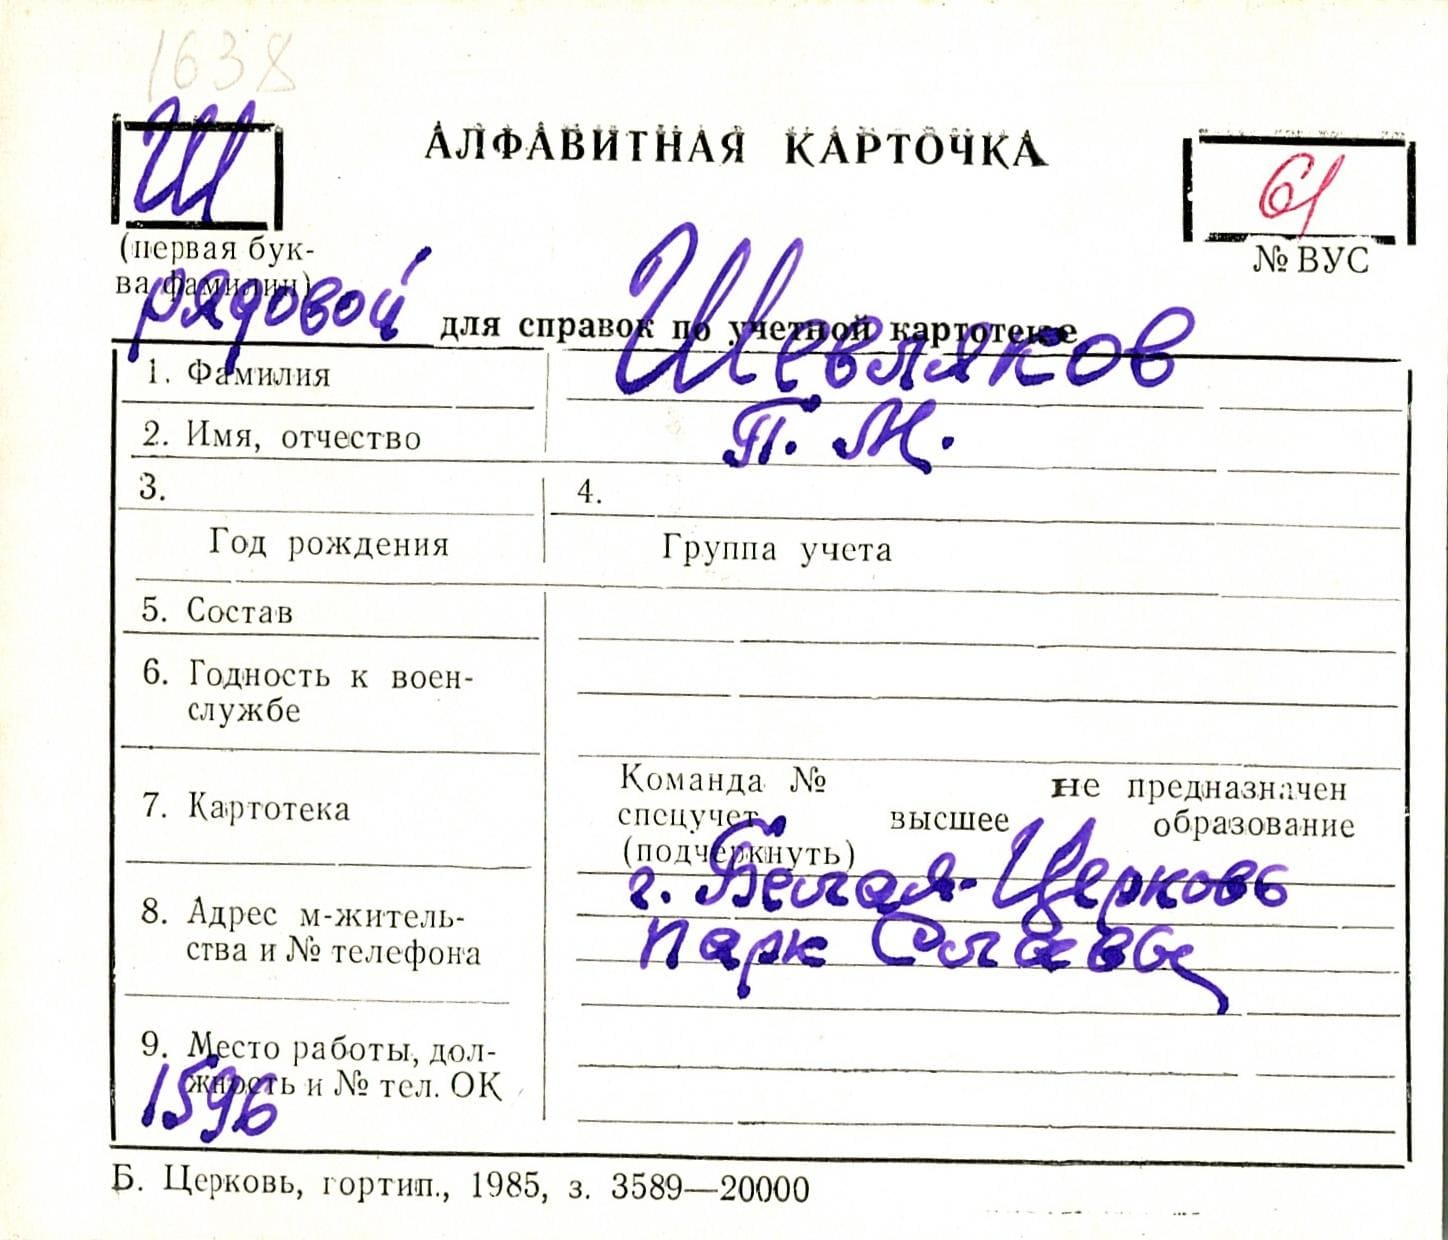 1638
Ш
АЛФАВИТНАЯ КАРТОЧКА
61
(первая бук-
ва фамилии)
№ ВУС
рядовой
для справок по учетной картотеке
1. Фамилия
Шевляков
2. Имя, отчество
П. М.
3.
4.
Год рождения
Группа учета
5. Состав
6. Годность к воен-
службе
7. Картотека
Команда № не предназначен
спецучет высшее образование
(подчеркнуть)
8. Адрес м-житель-
ства и № телефона
г. Белая-Церковь
парк Славы
9. Место работы, дол-
жность и № тел. ОК
1596
Б. Церковь, гортип., 1985, з. 3589—20000